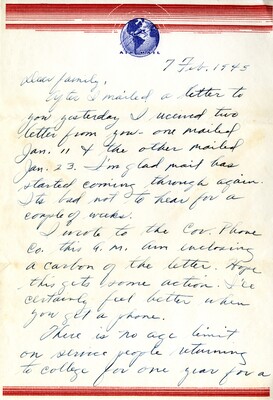 7 Feb. 1945
Dear family,
After I mailed a letter to
you yesterday I received two
letter from you - one mailed
Jan. 11 & the other mailed
Jan. 23. I'm glad mail has
started coming through again.
It's bad not to hear for a
couple of weeks.
I wrote to the Cov. Phone
Co. this A.M. am inclosing
a carbon of the letter. Hope
this gets some action. I'll
certainly feel better when
you get a phone.
There is no age limit
on service people returning
to college for one year for a